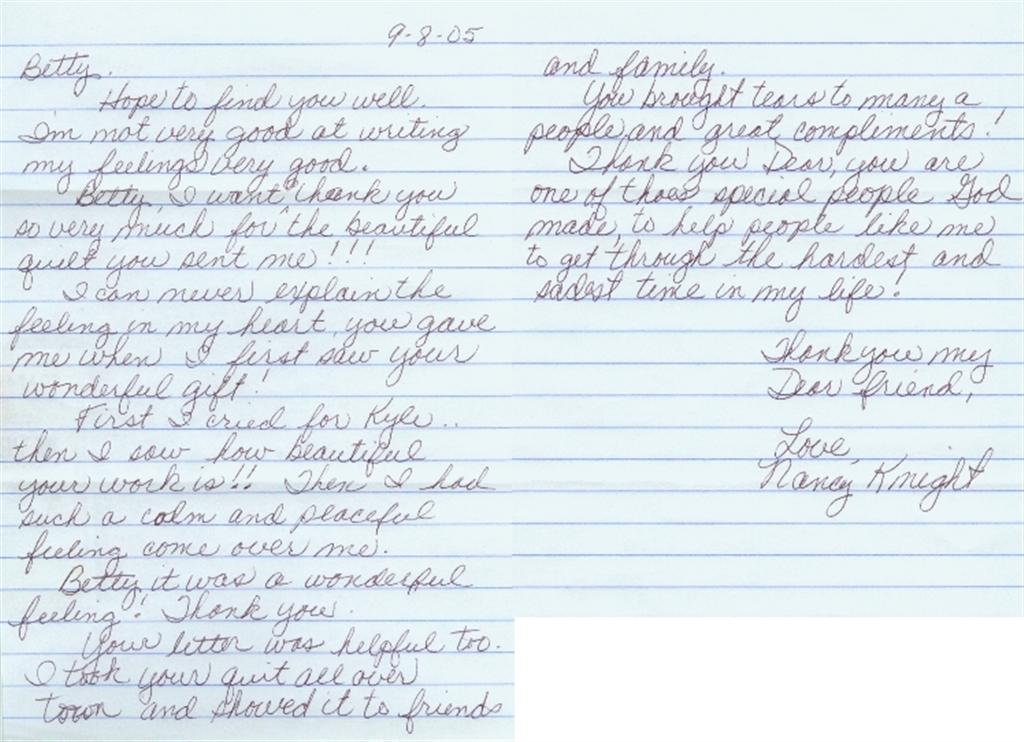 9-8-05
Betty.
Hope to find you well.
I'm not very good at writing
my feelings very good.
Betty, I want thank you
so very much for the beautiful
quilt you sent me!!!
I can never explain the
feeling in my heart, you gave
me when I first saw your
wonderful gift!
First I cried for Kyle..
then I saw how beautiful
your work is!! Then I had
such a calm and peaceful
feeling come over me.
Betty, it was a wonderful
feeling! Thank you.
Your letter was helpful too.
I took your quit all over
town and showed it to friends
and family.
You brought tears to many a
people, and great compliments!
Thank you Dear, you are
one of thoes special people God
made, to help people like me
to get through the hardest and
sadest time in my life!
Thank you my
Dear friend,
Love,
Nancy Knight